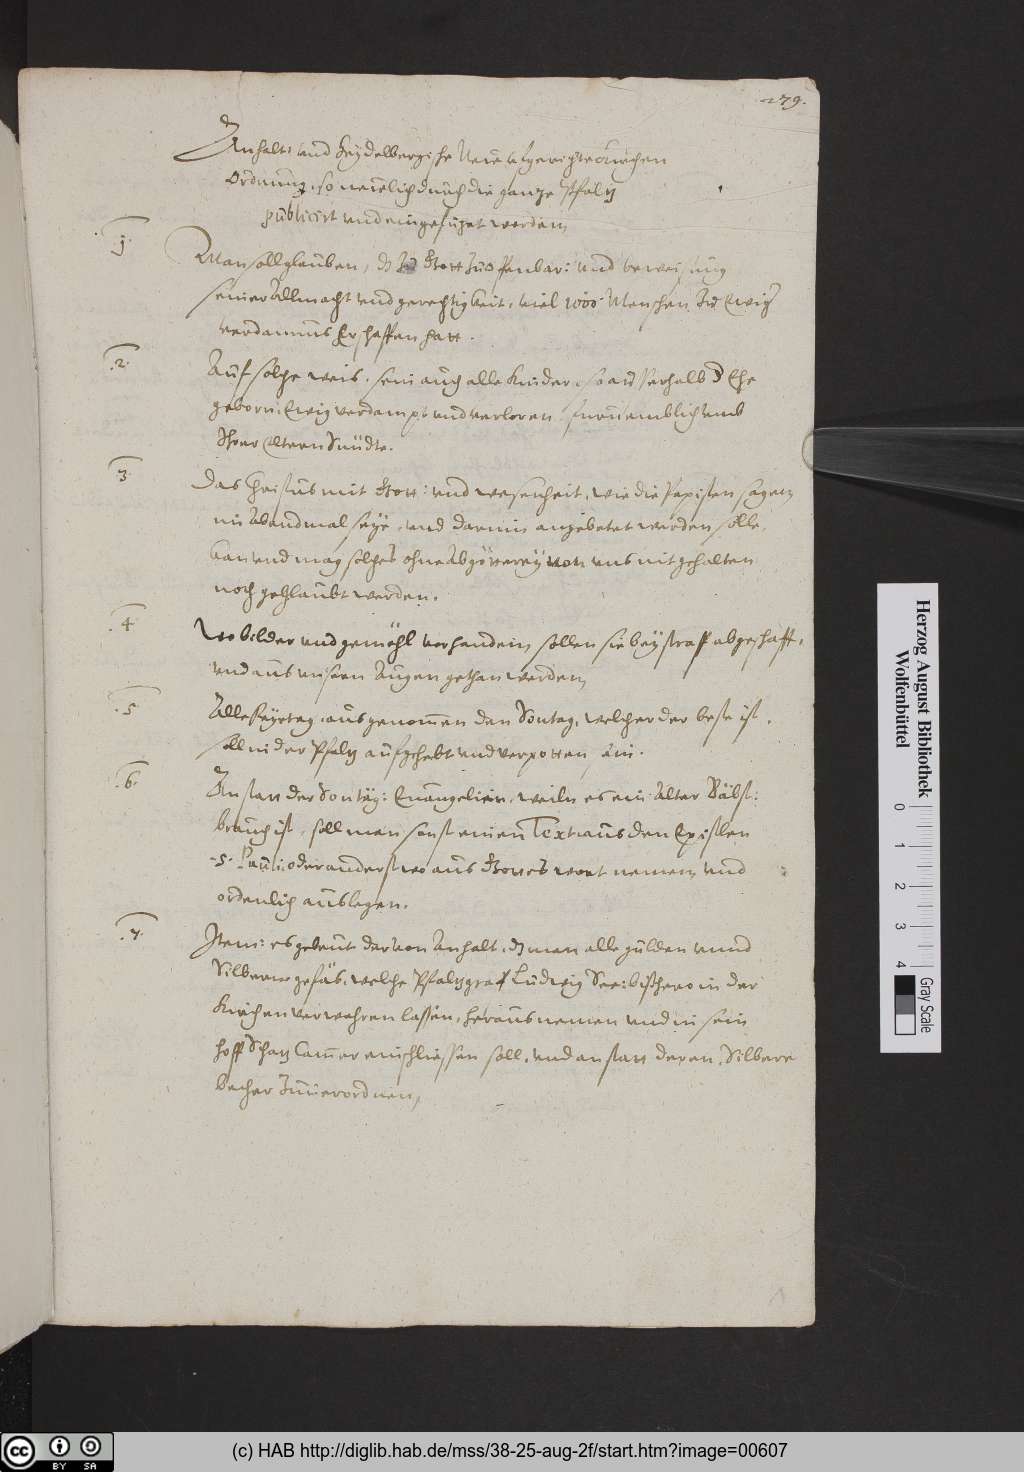 279.
Anhalt: und Heydelbergische Neue
Ordnung, so neuelich durch die ganze Pfaltz
publicirt und eingefüret worden,
j.
Man soll glauben, dz Gott zu offenbar: und beweisung
seiner Allmacht und gerechtigkeit, viel 1000 Menschen zu Ewig
verdamnus Erschaffen hatt.
.2.
Auf solche weis, sein auch alle Kinder, so ausserhalb d Ehe
geborn, Ewig verdampt und verloren, fürnemblich umb
Ihrer Eltern Sündte.
.3.
Das Christus mit Gott: und wesenheit, wie die Papisten sagen,
im Abendmal seye, und darinn angebetet werden solle,
kan und mag solches ohne Abgötterey von uns nit gehalten
noch geglaubt werden.
.4.
Wo bilder und gemöhl vorhanden, sollen sie bey straff abgeschafft,
und aus unsern Augen gethan werden,
.5.
Alle Feyrtag, ausgenomen den Sontag, welcher der beste ist,
soll in der Pfaltz aufgehebt und verpotten sein.
.6.
Anstatt der Sontäg: Evangelien, weiln es ein alter Bäbst:
brauch ist, soll man sonst einen Text aus den Epistlen
.S. Pauli: oder anderstwo aus Gottes wort nemen, und
ordenlich auslegen.
.7.
Item: es gebeut der von Anhalt, dz man alle gulden unnd
Silberne gefäs, welche Pfaltzgraf Ludwig See: bisshero in der
Kirchen verwahren lassen, heraus nemen und in sein
hoff Schatz Camer einschliessen soll, und anstatt deren, Silbere
becher verordnen,
Herzog August Bibliothek
Wolfenbüttel
0 1 2 3 4
Gray Scale
cc BY SA
(c) HAB http://diglib.hab.de/mss/38-25-aug-2f/start.htm?image=00607